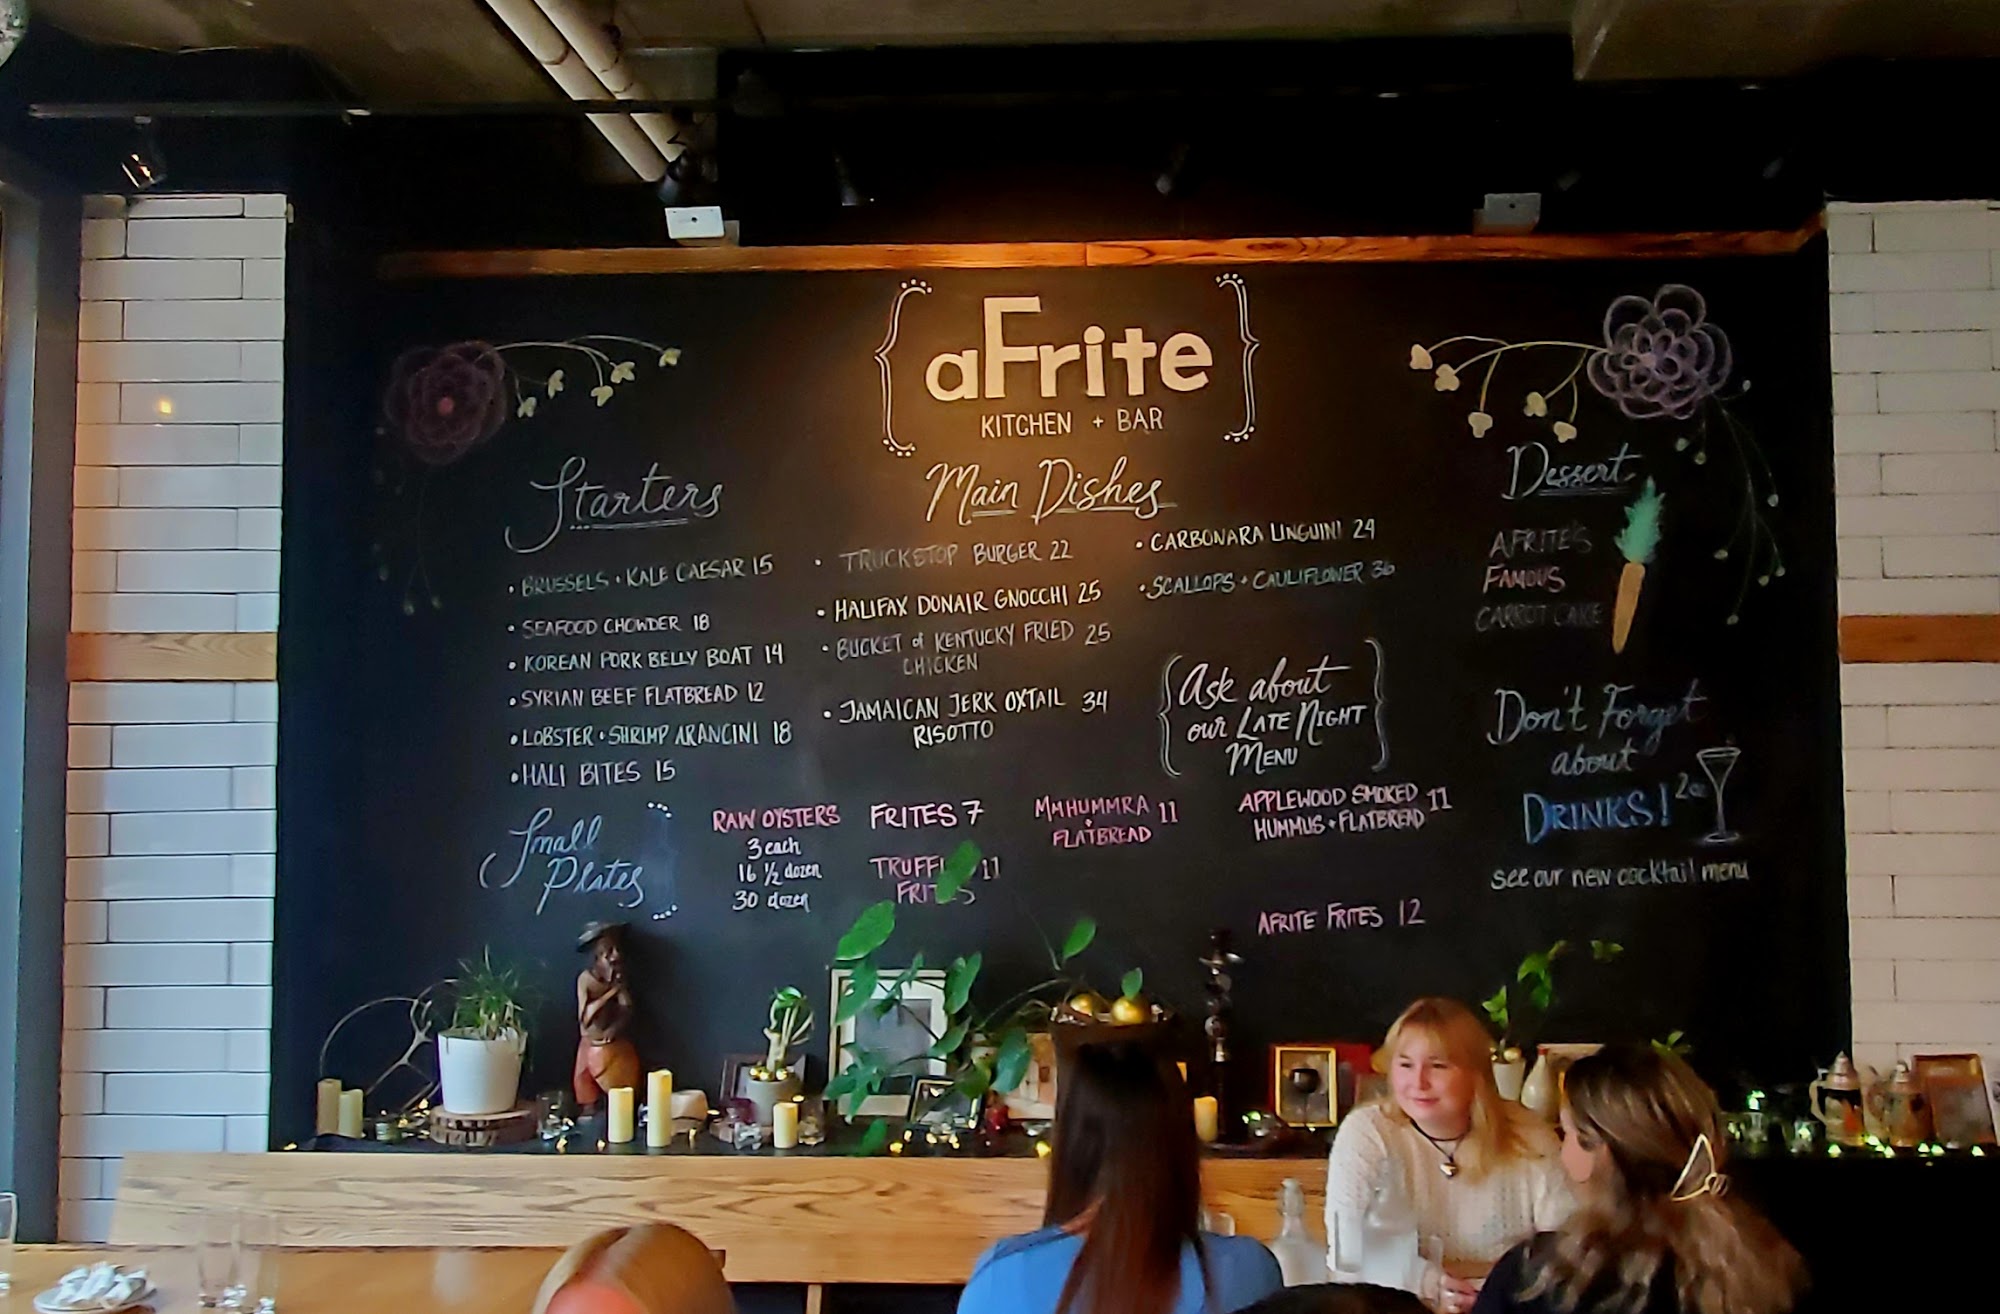 aFrite
KITCHEN + BAR
Starters
• BRUSSELS • KALE CAESAR 15
• SEAFOOD CHOWDER 18
• KOREAN PORK BELLY BOAT 14
• SYRIAN BEEF FLATBREAD 12
• LOBSTER • SHRIMP ARANCINI 18
• HALI BITES 15
Main Dishes
• TRUCKSTOP BURGER 22
• HALIFAX DONAIR GNOCCHI 25
• BUCKET of KENTUCKY FRIED 25
CHICKEN
• JAMAICAN JERK OXTAIL 34
RISOTTO
• CARBONARA LINGUINI 24
• SCALLOPS + CAULIFLOWER 36
Ask about
our LATE NIGHT
MENU
Dessert
AFRITE'S
FAMOUS
CARROT CAKE
Don't Forget
about
DRINKS! 2oz
see our new cocktail menu
Small
Plates
RAW OYSTERS
3 each
16 ½ dozen
30 dozen
FRITES 7
TRUFFLE 11
FRITES
MMHUMMRA 11
+
FLATBREAD
APPLEWOOD SMOKED 11
HUMMUS + FLATBREAD
AFRITE FRITES 12